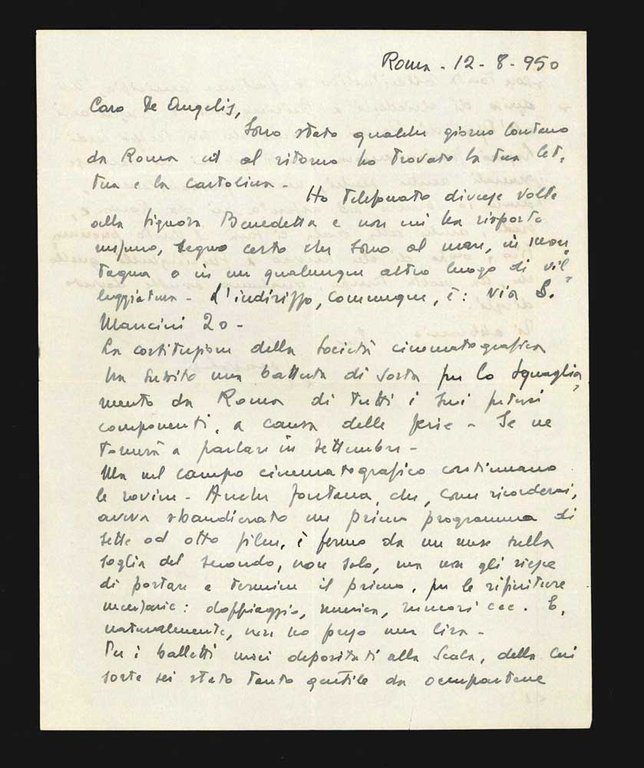 Roma - 12 - 8 - 950
Caro De Angelis,
Sono stato qualche giorno lontano
da Roma ed al ritorno ho trovato la tua let,
tera e la cartolina -
Ho telefonato diverse volte
alla Signora Benedetta e non mi ha risposto
nessuno, segno certo che sono al mare, in mon
tagna o in un qualunque altro luogo di vil
leggiatura - L'indirizzo, comunque, è: via S.
Mancini 20 -
La costituzione della Società cinematografica
ha subito una battuta di sosta per lo squaglia,
mento da Roma di tutti i suoi futuri
componenti, a causa delle ferie - Se ne
tornerà a parlare in settembre -
Ma nel campo cinematografico continuano
le rovine - Anche Fontana, che, come ricorderai,
aveva sbandierato un primo programma di
sette od otto film, è fermo da un mese sulla
soglia del secondo, non solo, ma non gli riesce
di portare a termine il primo, per le rifiniture
necessarie: doppiaggio, musica, rumori ecc. E,
naturalmente, non ho preso una lira -
Per i balletti miei depositati alla Scala, della cui
sorte sei stato tanto gentile da occupartene